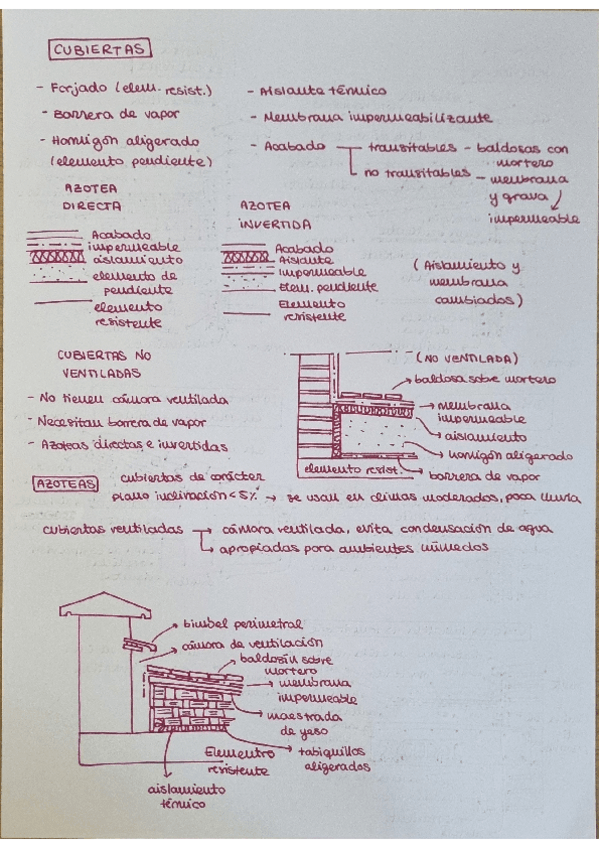 CUBIERTAS
- Forjado (elem. resist.)
- Barrera de vapor
- Hormigón aligerado
(elemento pendiente)
- Aislante térmico
- Membrana impermeabilizante
- Acabado
transitables - baldosas con
mortero
no transitables - membrana
y grava
impermeable
AZOTEA
DIRECTA
Acabado
impermeable
aislamiento
elemento de
pendiente
elemento
resistente
AZOTEA
INVERTIDA
Acabado
Aislante
impermeable
Elem. pendiente
Elemento
resistente
(Aislamiento y
membrana
cambiados)
CUBIERTAS NO
VENTILADAS
- No tienen cámara ventilada
- Necesitan barrera de vapor
- Azoteas directas e invertidas
(NO VENTILADA)
baldosa sobre mortero
membrana
impermeable
aislamiento
hormigón aligerado
barrera de vapor
elemento resist.
AZOTEAS
cubiertas de carácter
plano inclinación < 5% → se usan en climas moderados, poca lluvia
cubiertas ventiladas → cámara ventilada, evita condensación de agua
→ apropiadas para ambientes húmedos
bimbel perimetral
cámara de ventilación
baldosín sobre
mortero
membrana
impermeable
maestrada
de yeso
tabiquillos
aligerados
Elemento
resistente
aislamiento
térmico